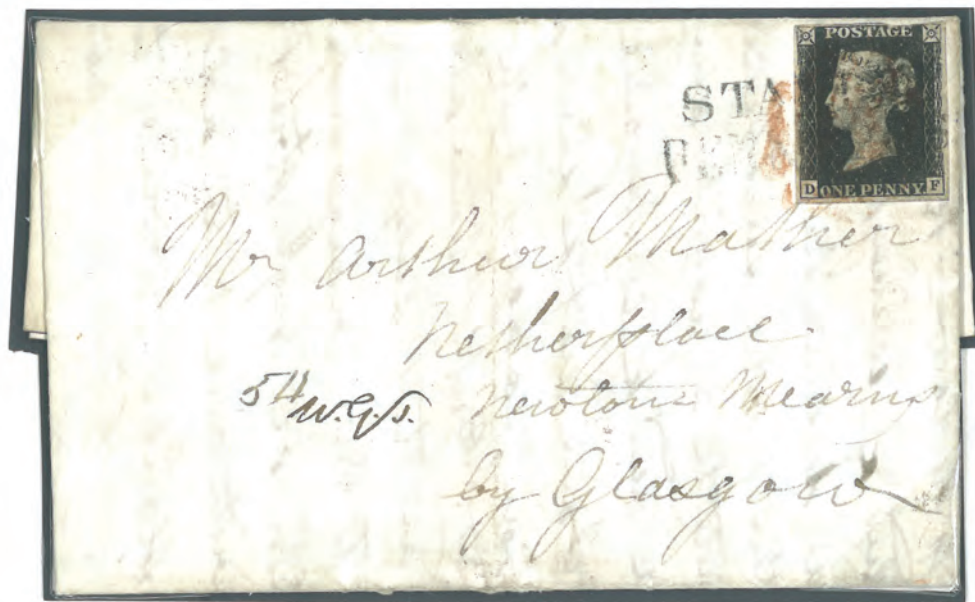 POSTAGE
STA
D ONE PENNY F
Mr Arthur Mather
Netherplace
Newton Mearns
by Glasgow